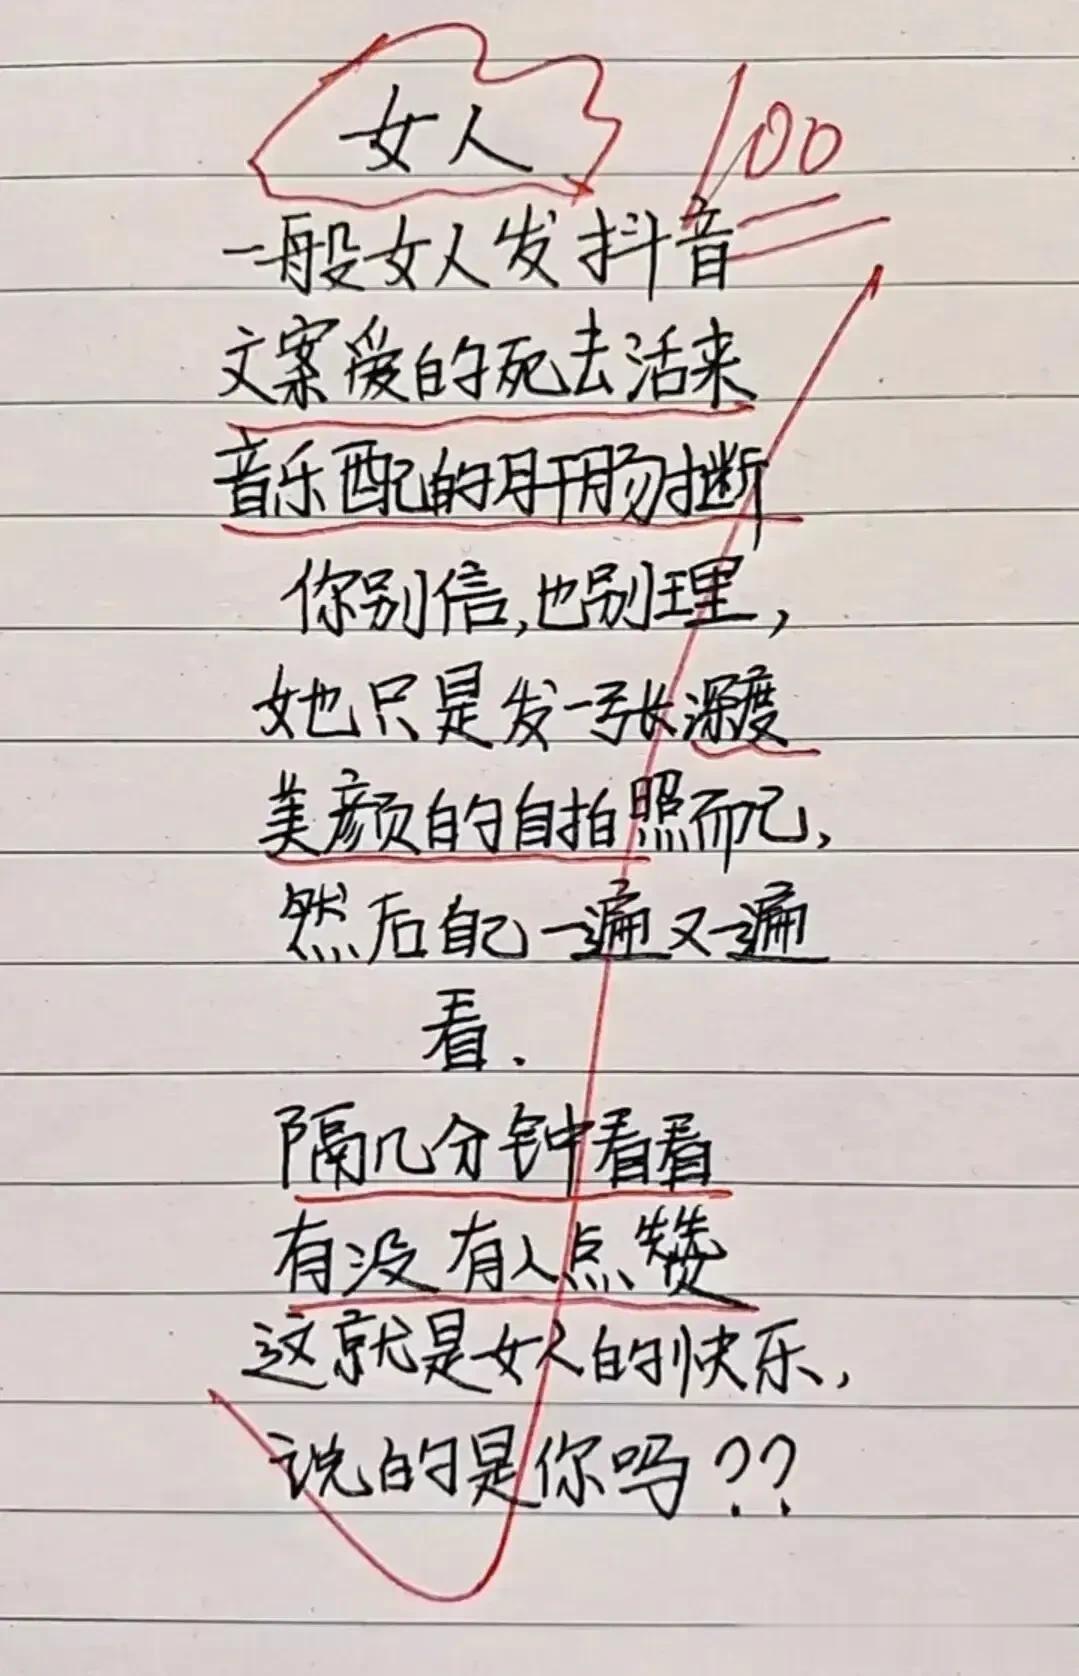 女人
100
一般女人发抖音
文案爱的死去活来
音乐配的肝肠寸断
你别信,也别理,
她只是发一张深度
美颜的自拍照而已,
然后自己一遍又一遍
看.
隔几分钟看看
有没有人点赞
这就是女人的快乐,
说的是你吗??